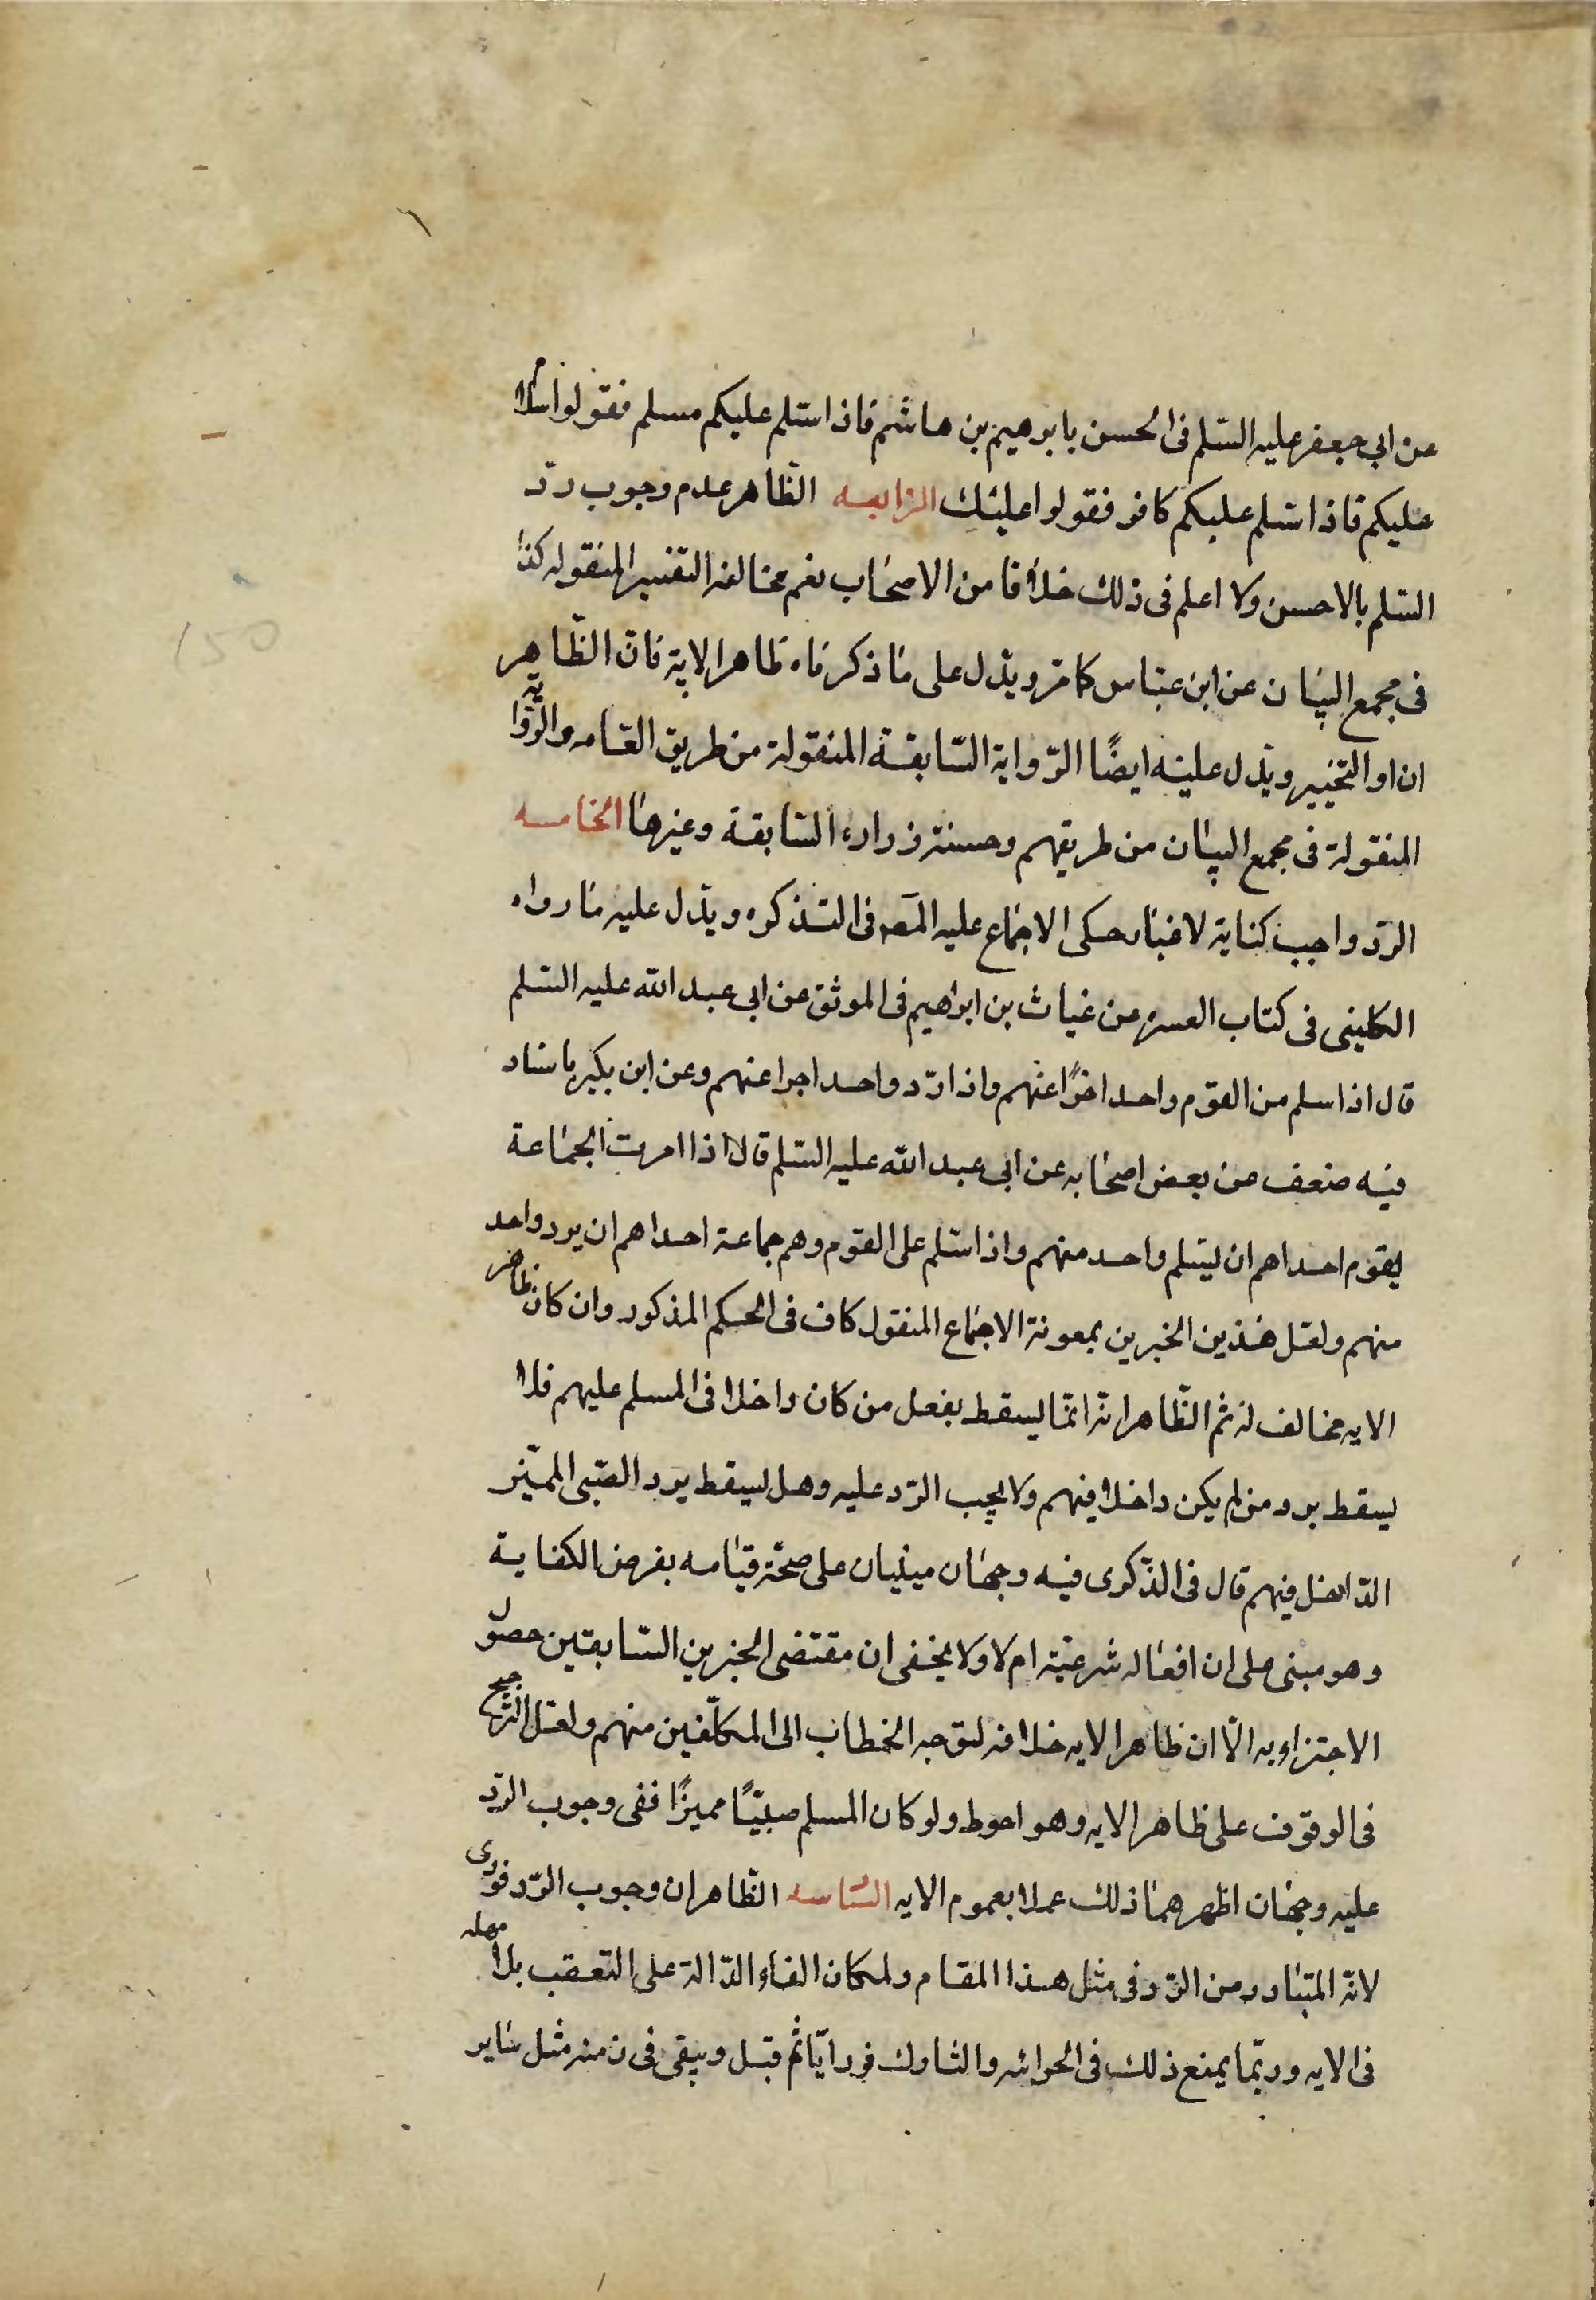 عن ابى جعفر عليه السّلم فى الحسن بابرهيم بن هاشم فاذا سّلم عليكم مسلم فقولوا سلام
عليكم فاذا سّلم عليكم كافر فقولوا عليك الرابعه الظّاهر عدم وجوب ردّ
السّلم بالاحسن ولا اعلم فى ذلك خلافا من الاصحاب نعم مخالفه التفسير المنقوله كذا
فى مجمع البيان عن ابن عبّاس كما مرّ ويدّل على ما ذكرناه ظاهر الاية فانّ الظّاهر
ان او التخيير ويدّل عليه ايضًا الرّواية السّابقة المنقولة من طريق العّامه والرّوايه
المنقولة فى مجمع البيان من طريقهم وحسنة زراره السّابقة وغيرها الخامسه
الرّد واجب كناية لاغبار حكى الاجماع عليه المص فى التّذكره ويدّل عليه ما رواه
الكلينى فى كتاب العسره عن غياث بن ابراهيم فى الموثق عن ابى عبد الله عليه السّلم
قال اذا سلم من القوم واحد اخرًا عنهم واذا ردّ واحد اجرا عنهم وعن ابن بكير باسناد
فيه ضعف عن بعض اصحابه عن ابى عبد الله عليه السّلم قال اذا امرت الجماعة
بقوم احداهم ان يسّلم واحد منهم واذا سّلم على القوم وهم جماعة احداهم ان يرد واحد
منهم ولعّل هذين الخبرين بمعونة الاجماع المنقول كاف فى الحكم المذكور وان كان ظاهر
الايه مخالف له ثم الظّاهر انّه انّما يسقط بفعل من كان داخلا فى المسلم عليهم فلا
يسقط برد من لم يكن داخلا فيهم ولا يجب الرّد عليه وهل يسقط برد الصّبى المميّز
الدّاخل فيهم قال فى الذّكرى فيه وجهان مبنيان على صحّة قيامه بفرض الكفاية
وهو مبنى على ان افعاله شرعيّة ام لا ولا يخفى ان مقتضى الخبرين السّابقين حصول
الاجتزاء به الّا ان ظاهر الايه خلافه لتوجه الخطاب الى المكلّفين منهم ولعّل الترجيح
فى الوقوف على ظاهر الايه وهو احوط ولو كان المسلم صبيّاً مميزًا ففى وجوب الرّد
عليه وجهان اظهرهما ذلك عملا بعموم الايه السّاسه الظّاهر ان وجوب الرّد فورى
لانّه المتبادر من الرّد فى مثل هذا المقام ولمكان الفاء الدّالة على التعقب بلا مهله
فى الايه وربّما يمنع ذلك فى الحرائه والتارك فورا ياثم قبل ويبقى فى ذمته مثل ساير